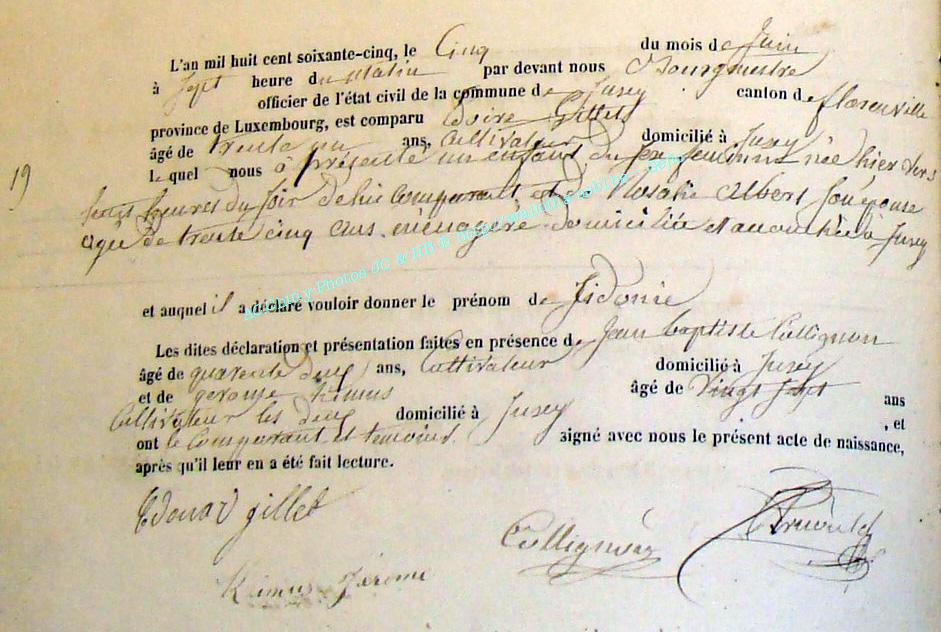 L'an mil huit cent soixante-cinq, le Cinq du mois de Juin
à Sept heure du Matin par devant nous Bourgmestre
officier de l'état civil de la commune de Jusey canton de florenville
province de Luxembourg, est comparu Gillet
âgé de trente un ans, Cultivateur domicilié à Jusey
le quel nous à présenté un enfant du Sexe feminin née hier vers
19
heures du Soir de lui Comparant et de Rosalie Albert Son épouse
agée de trente cinq ans ménagère domiciliée et accouchée à Jusey
et auquel il a déclaré vouloir donner le prénom de Sidonie
Les dites déclaration et présentation faites en présence de Jean baptiste Collignon
âgé de quarente deux ans, Cultivateur domicilié à Jusey
et de gerome himus âgé de Vingt Sept ans
Cultivateur les deux domicilié à Jusey , et
ont le Comparant et temoins signé avec nous le présent acte de naissance,
après qu'il leur en a été fait lecture.
Edouard gillet
Collignon
Jérome